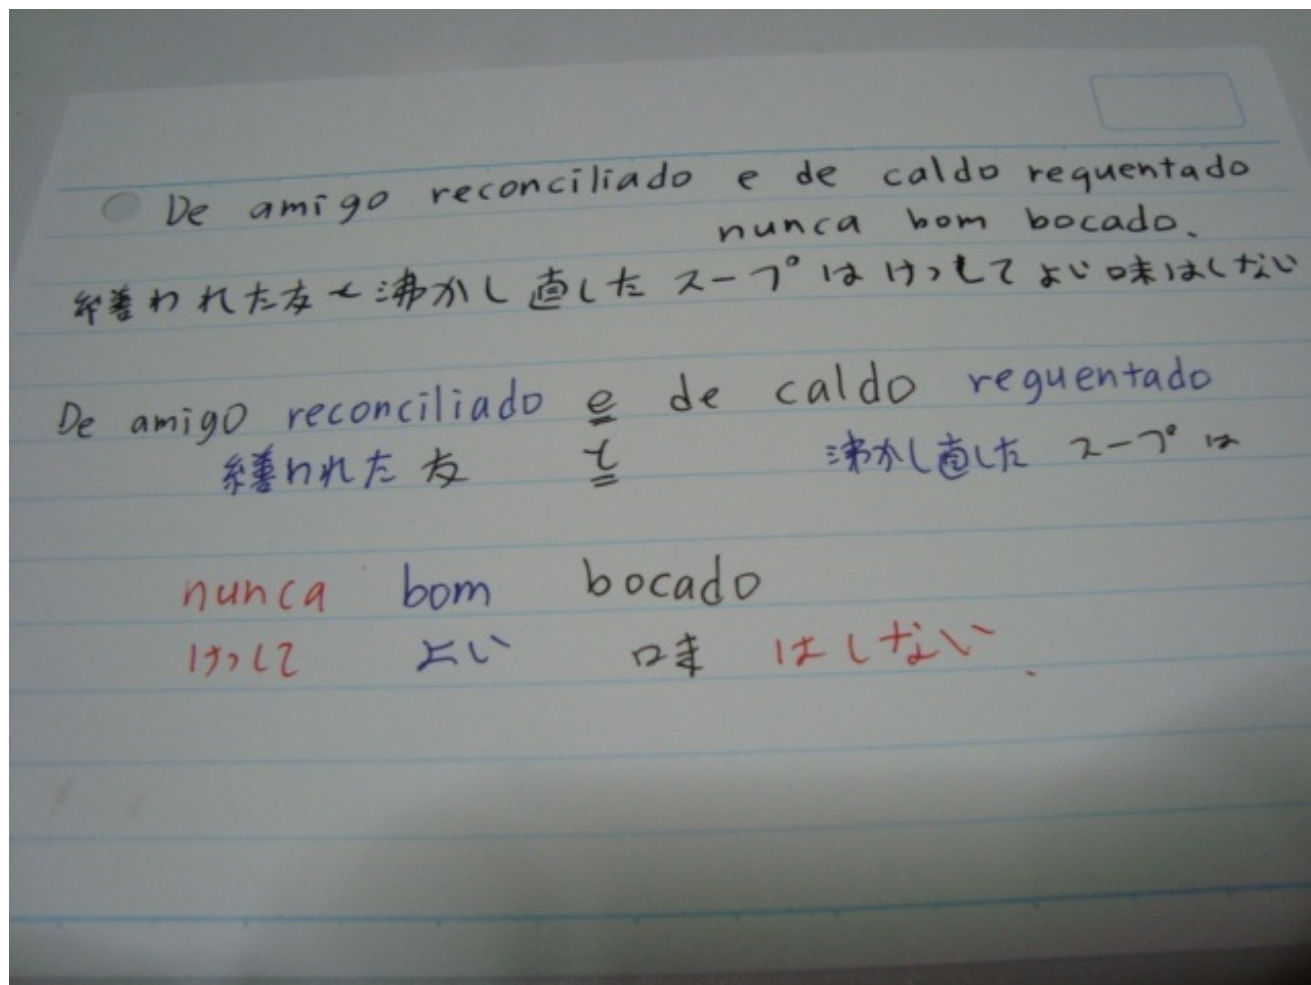 De amigo reconciliado e de caldo requentado
nunca bom bocado.
繕われた友と沸かし直したスープはけっしてよい味はしない
De amigo reconciliado e de caldo requentado
繕われた友 と 沸かし直した スープは
nunca bom bocado
けっして よい 味 はしない.